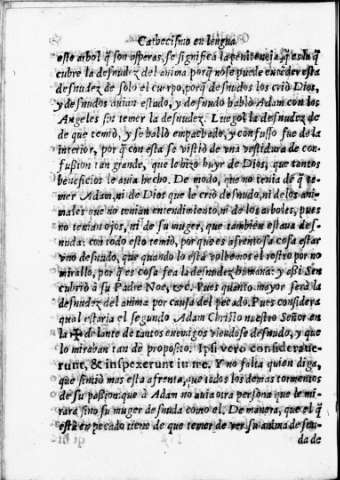 Cathecismo en lengua
este arbol q̃ son asperas, se significa la penitencia, q̃ es la q̃
cubre la desnudez del anima porq̃ no se puede entẽder esta
desnudez de solo el cuerpo, porq̃ desnudos los crió Dios,
y desnudos auian estado, y desnudo habló Adam con los
Angeles sin temer la desnudez. Luego la desnudez de
de que temió, y se halló empachado, y confusso fue de la
interior, por q̃ con esta se vistió de vna vestidura de con-
fusion tan grande, que le hizo huyr de Dios, que tantos
beneficios le auia hecho. De modo, que no tenia de q̃ te-
mer Adam, ni de Dios que le crió desnudo, ni de los ani-
males que no tenian entendimiento, ni de los arboles, pues
no tenian ojos, ni de su muger, que tambien estaua desnu-
nuda: con todo esto temió, porque es afrentosa cosa estar
vno desnudo, que quando lo está voluemos el rostro por no
mirallo, por q̃ es cosa fea la desnudez humana: y assi Sen
cubrió á su Padre Noe, &c. Pues quanto mayor será la
desnudez del anima por causa del peccado. Pues considera
qual estaria el segundo Adam Christo nuestro Señor en
la ✠ de lante de tantos enemigos viendose desnudo, y que
lo mirauan tan de proposito. Ipsi vero considerauc-
runt, & inspexerunt iu me. Y no falta quien diga,
que sintió mas esta afrenta, que todos los demas tormentos
de su passion: que à Adam no auia otra persona que le mi-
rara sino su muger desnuda como el. De manera, que el q̃
está en pecado tiene de que temer de ver su anima de snu-
da de